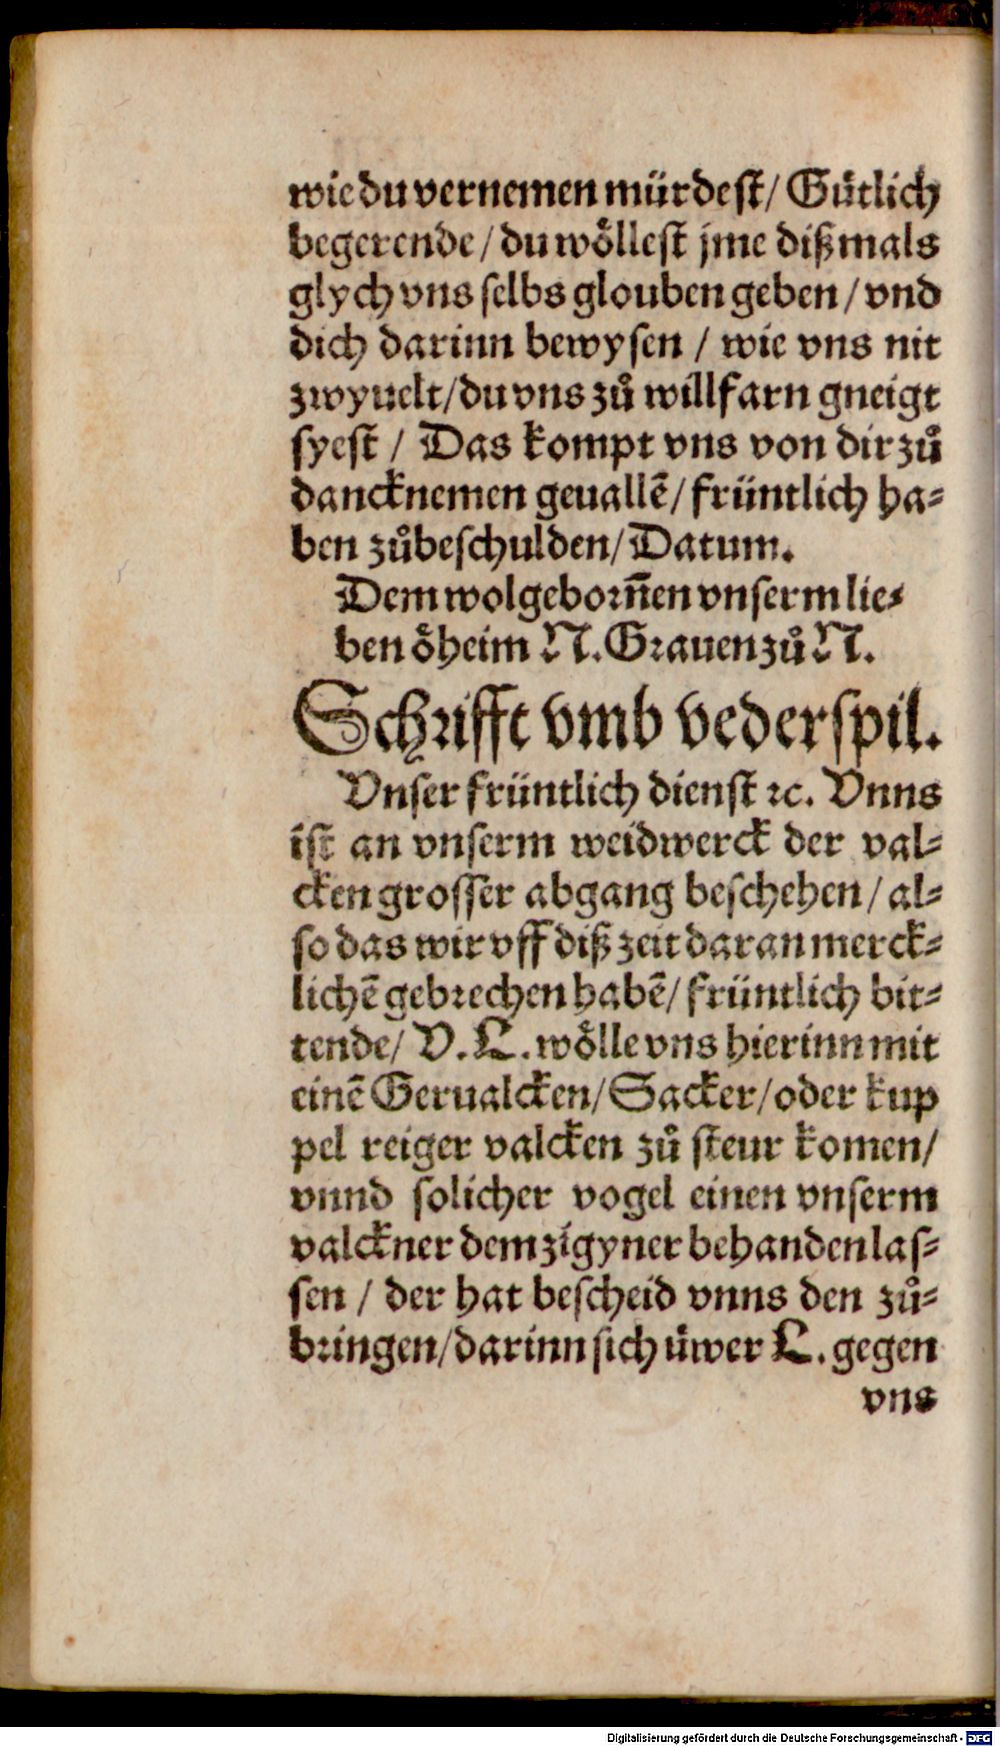 wie du vernemen mürdest/ Gütlich
begerende/ du wöllest jme dißmals
glych vns selbs glouben geben/ vnd
dich darinn bewysen / wie vns nit
zwyuelt/ du vns zů willfarn gneigt
syest / Das kompt vns von dir zů
dancknemen geuallē/ früntlich ha-
ben zůbeschulden/ Datum.
Dem wolgebornnen vnserm lie-
ben öheim N. Grauen zů N.
Schrifft vmb vederspil.
Vnser früntlich dienst ꝛc. Vnns
ist an vnserm weidwerck der val-
cken grosser abgang beschehen/ al-
so das wir vff diß zeit daran merck-
lichē gebrechen habē/ früntlich bit-
tende/ V. L. wölle vns hierinn mit
einē Gerualcken/ Sacker/ oder kup
pel reiger valcken zů steur komen/
vnnd solicher vogel einen vnserm
valckner dem zigyner behanden las-
sen / der hat bescheid vnns den zů-
bringen/ darinn sich üwer L. gegen
vns
Digitalisierung gefördert durch die Deutsche Forschungsgemeinschaft - DFG